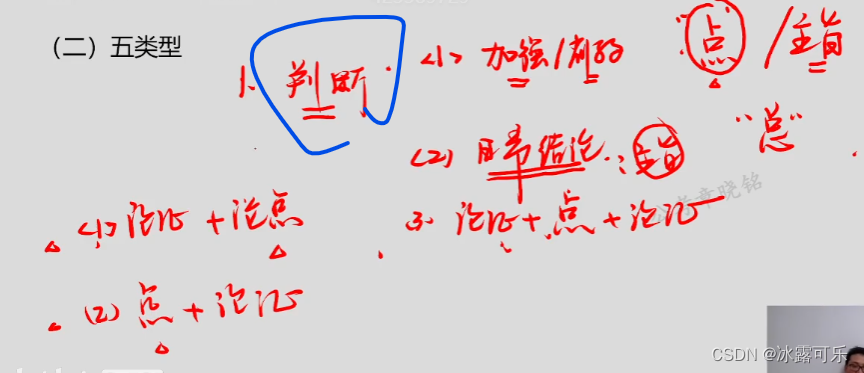 (二）五类型
1、判断
<1> 加强/削弱 "点"/主旨
(2) 日常结论：主旨 "总"
<1> 论证+论点
3. 论证+点+论证
(2) 点+论证
章晓铭
CSDN @冰露可乐